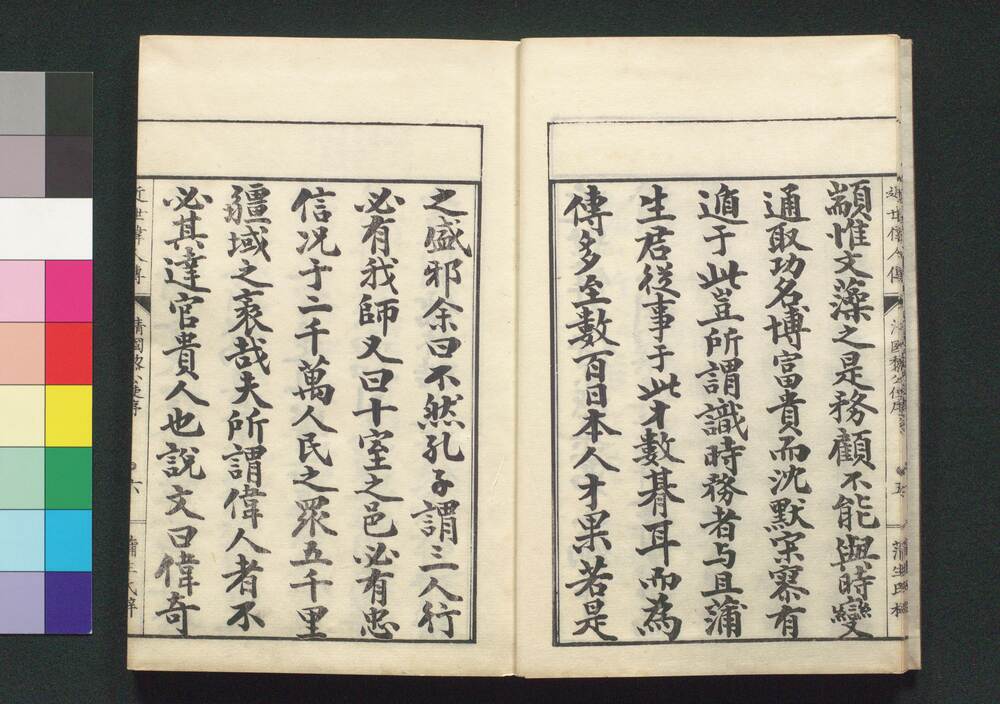 顓惟文藻之是務顧不能與時變
通取功名博富貴而沈默寀寮有
遁于此豈所謂識時務者与且蒲
生君從事于此才數朞耳而為
傳多至數百日本人才果若是
之盛邪余曰不然孔子謂三人行
必有我師又曰十室之邑必有忠
信况于二千萬人民之眾五千里
疆域之袤哉夫所謂偉人者不
必其達官貴人也說文曰偉奇
近世偉人傳
六